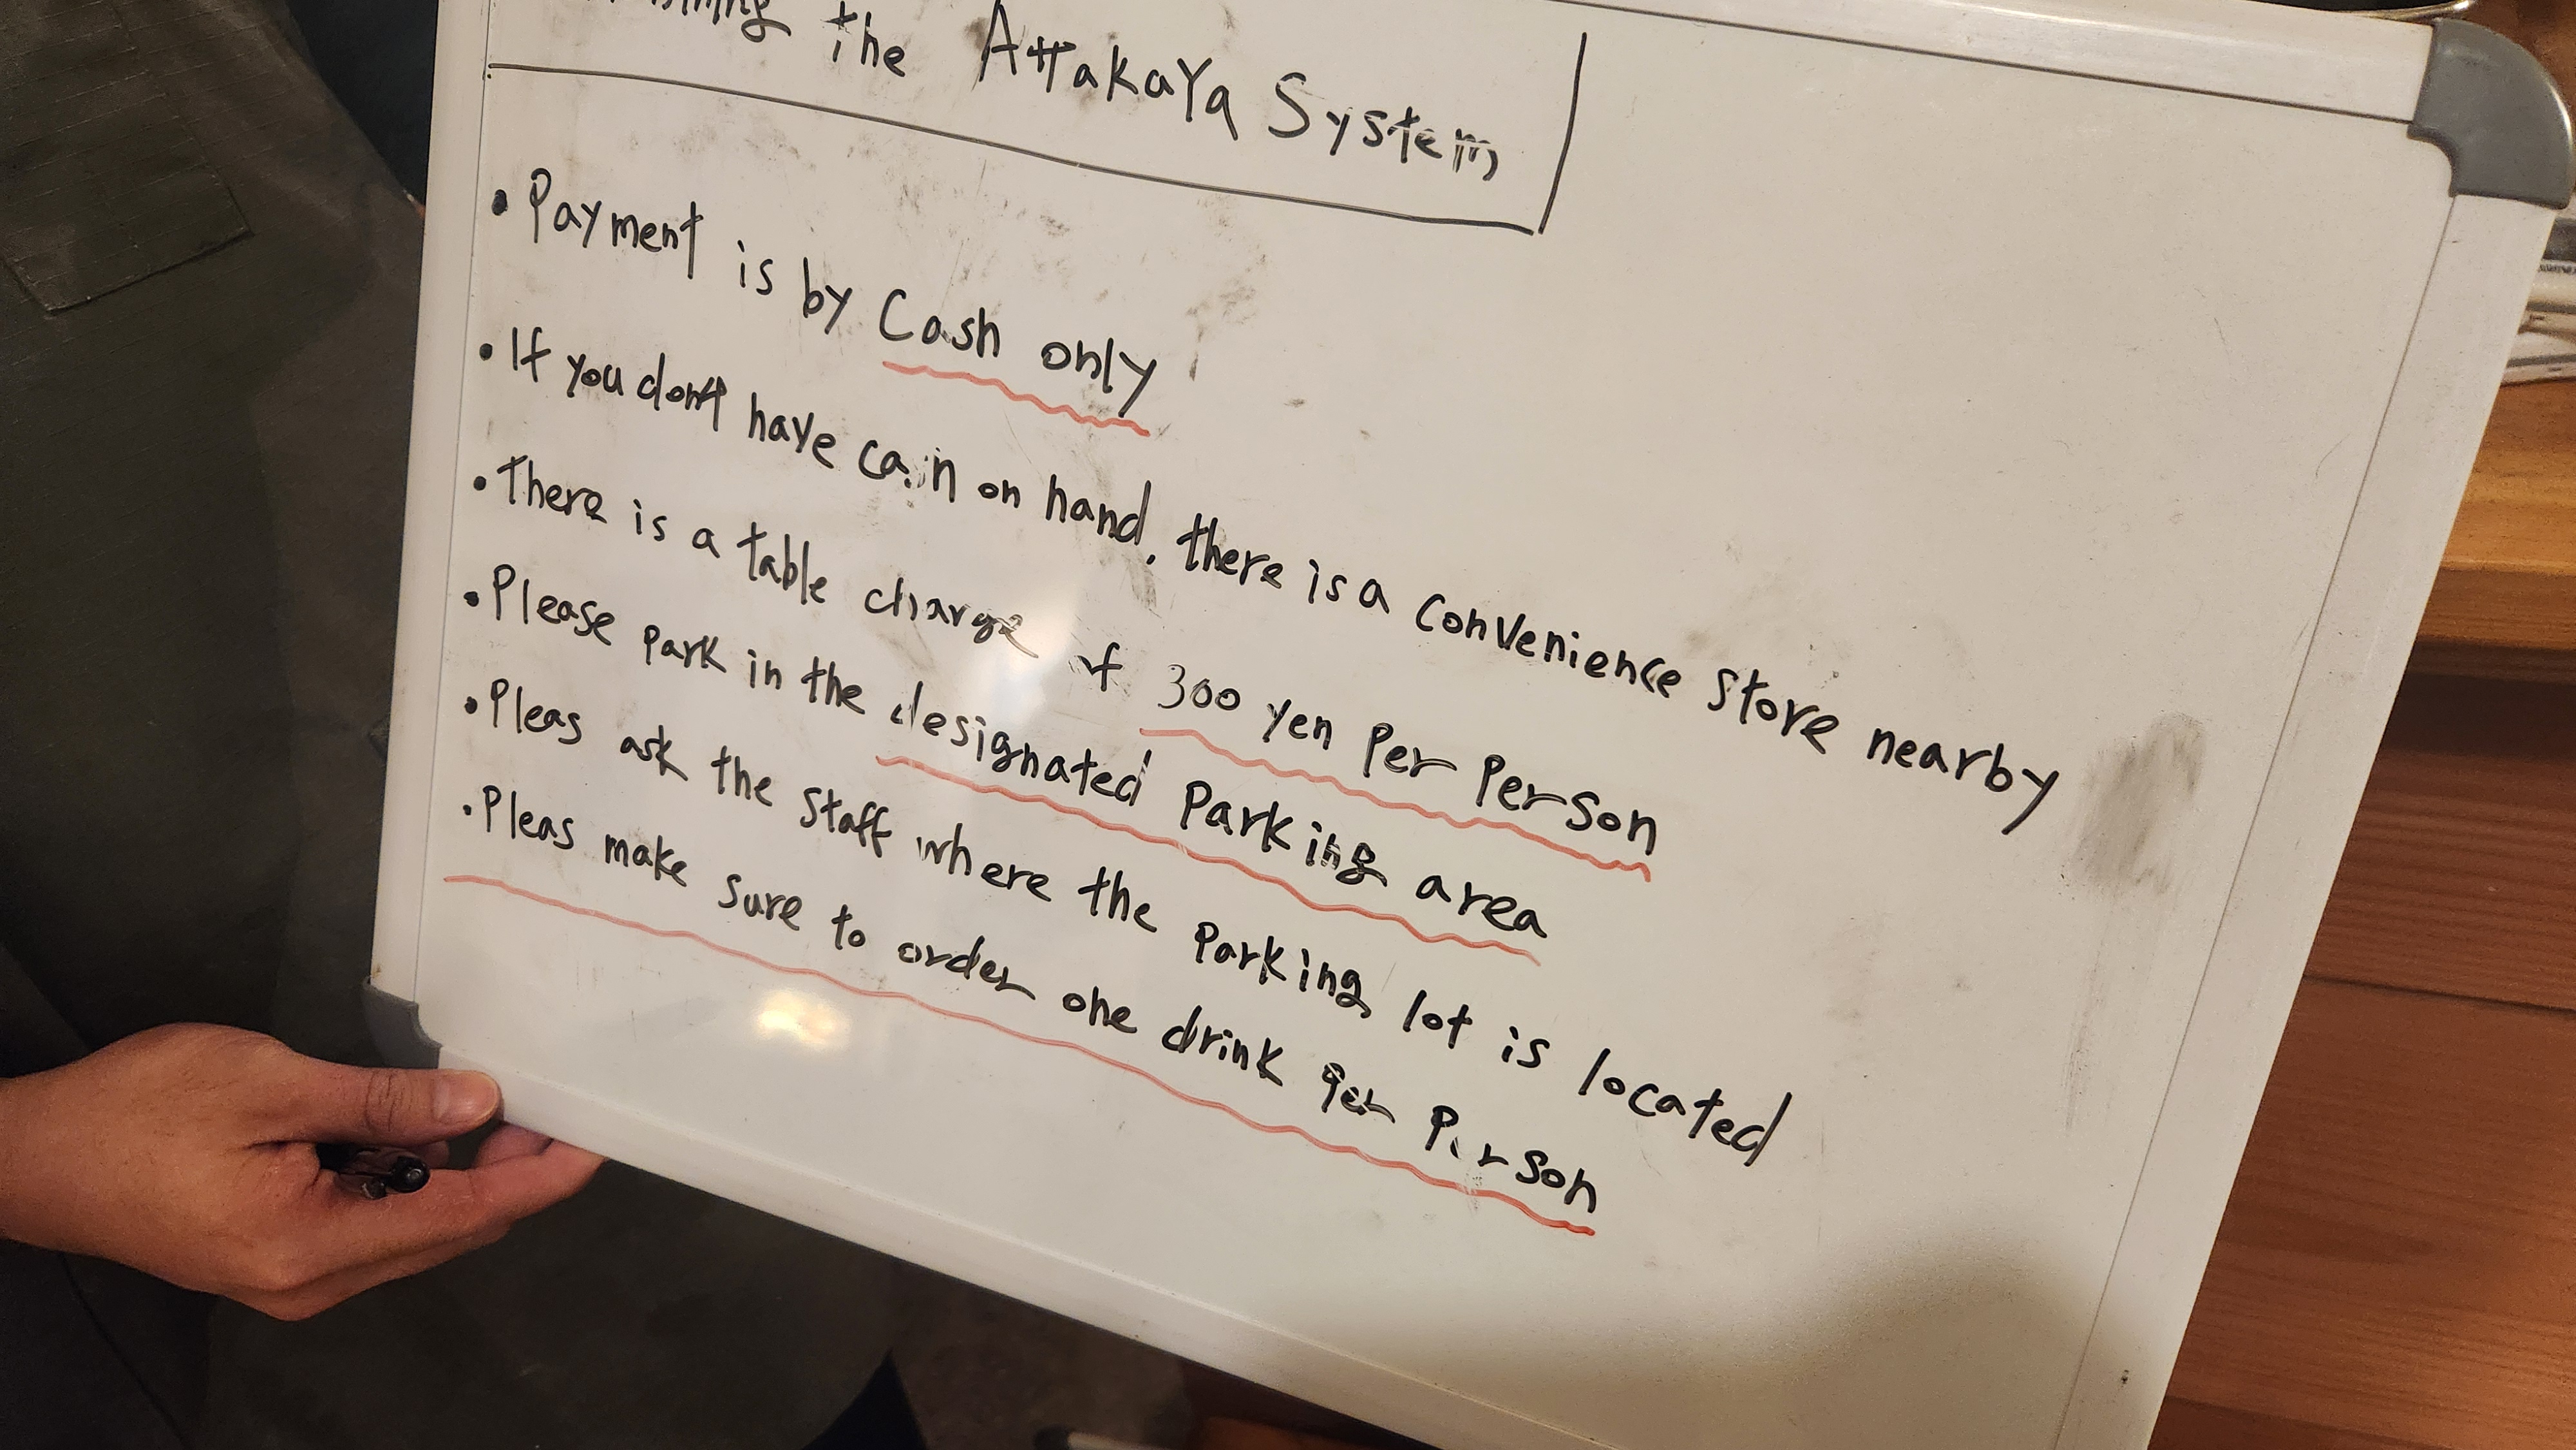 the Attakaya System
• Payment is by Cash only
• If you don't have cash on hand, there is a convenience store nearby
• There is a table charge of 300 yen Per Person
• Please Park in the designated Parking area
• Pleas ask the staff where the Parking lot is located
• Pleas make sure to order one drink Per Person